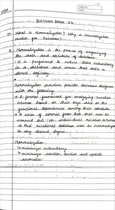 QUESTION BANK
What is Normalization? Why is normalization
Normalization is the process of organizing
the data and attributes of database.
it is performed to reduce data redundancy
in database and ensure that data is
stored logically.
Normalization provides database designer
with the following.
A formal framework for analyzing relation
schemas based on their keys and on the
functional dependencies among their attributes.
A series of normal form tests that can be
carried out on individual relation schemas
so that relational database can be normalized
to any desired degree.
Normalization
Minimize redundancy
minimize insertion, deletion and update